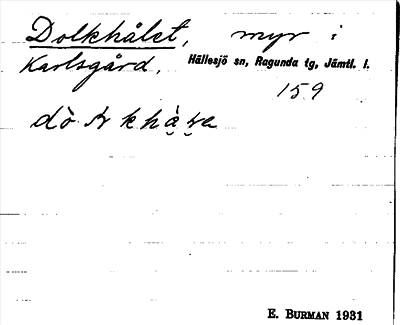 Dolkhålet, myr i
Karlsgård, Hällesjö sn, Ragunda tg, Jämtl. l.
159
E. BURMAN 1931